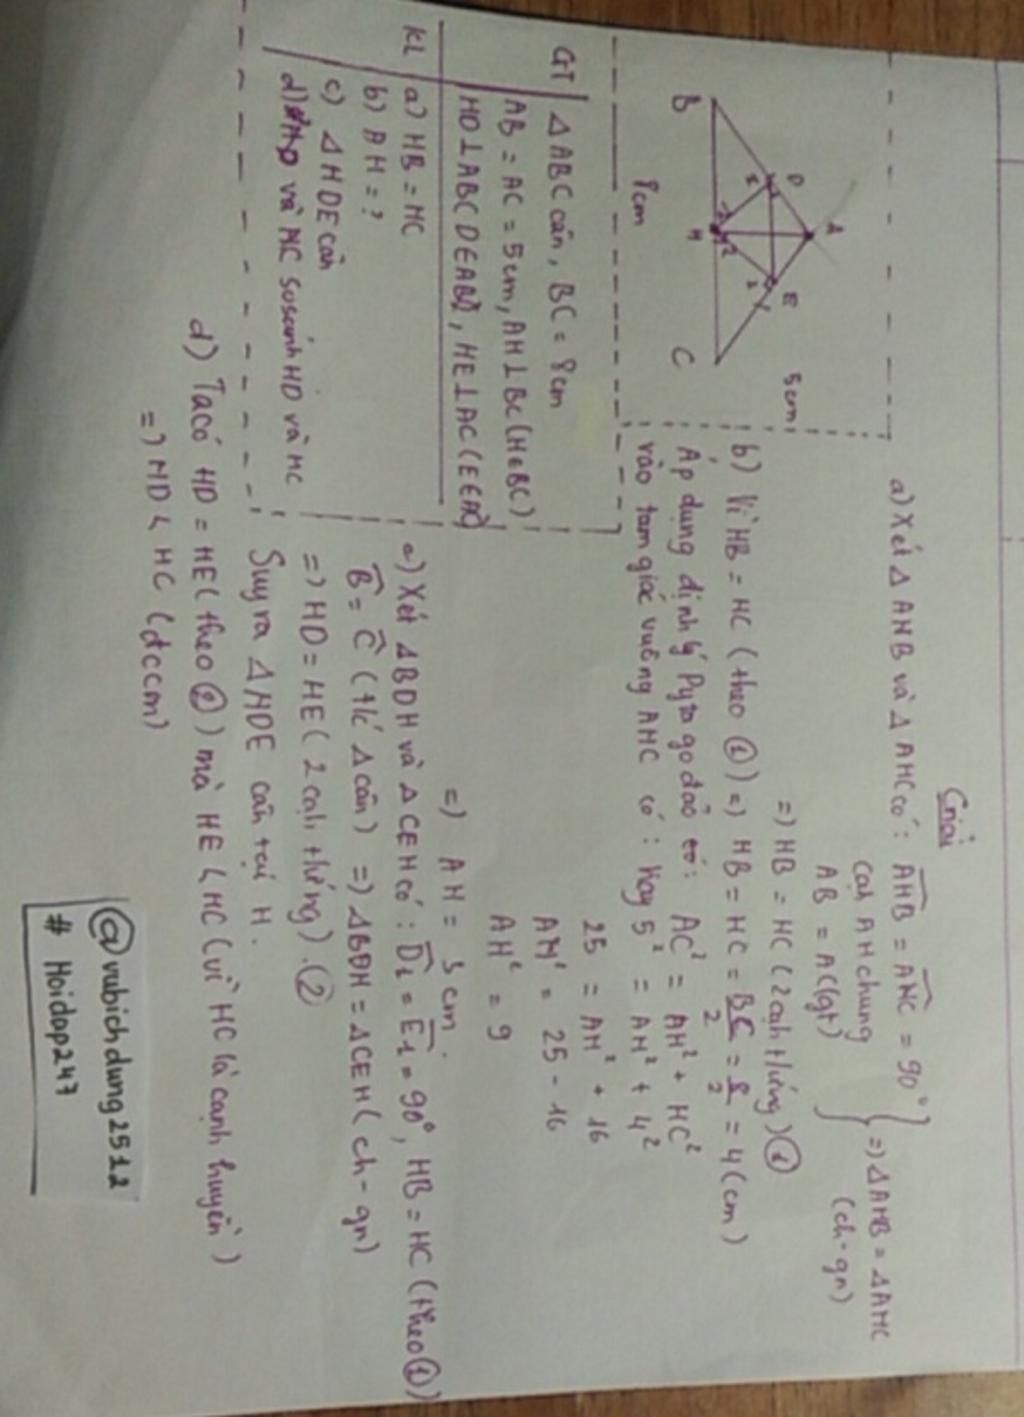 Giải
A
D
E
B
H
C
5cm
8cm
GT
Δ ABC cân, BC = 8cm
AB = AC = 5cm, AH ⊥ BC (H ∈ BC)
HD ⊥ AB( D ∈ AB), HE ⊥ AC (E ∈ AC)
KL
a) HB = HC
b) AH = ?
c) Δ HDE cân
d) và HC so sánh HD và HC
a) Xét Δ AHB và Δ AHC có: AHB = AHC = 90°
cạnh AH chung
AB = AC (gt)
=> Δ AHB = Δ AHC
(ch - gn)
=> HB = HC (2 cạnh t/ứng) ①
b) Vì HB = HC (theo ①) => HB = HC = BC/2 = 8/2 = 4 (cm)
Áp dụng định lý Pytago đảo có: AC² = AH² + HC²
vào tam giác vuông AHC có: Hay 5² = AH² + 4²
25 = AH² + 16
AH² = 25 - 16
AH² = 9
=> AH = 3 cm.
c) Xét ΔBDH và Δ CEH có: D1 = E1 = 90°, HB = HC (theo ①)
B = C (t/c Δ cân) => ΔBDH = ΔCEH (ch - gn)
=> HD = HE (2 cạnh t/ứng). ②
Suy ra Δ HDE cân tại H.
d) Ta có HD = HE (theo ②) mà HE < HC (vì HC là cạnh huyền)
=> HD < HC (đccm)
@vubichdung2512
# Hoidap247